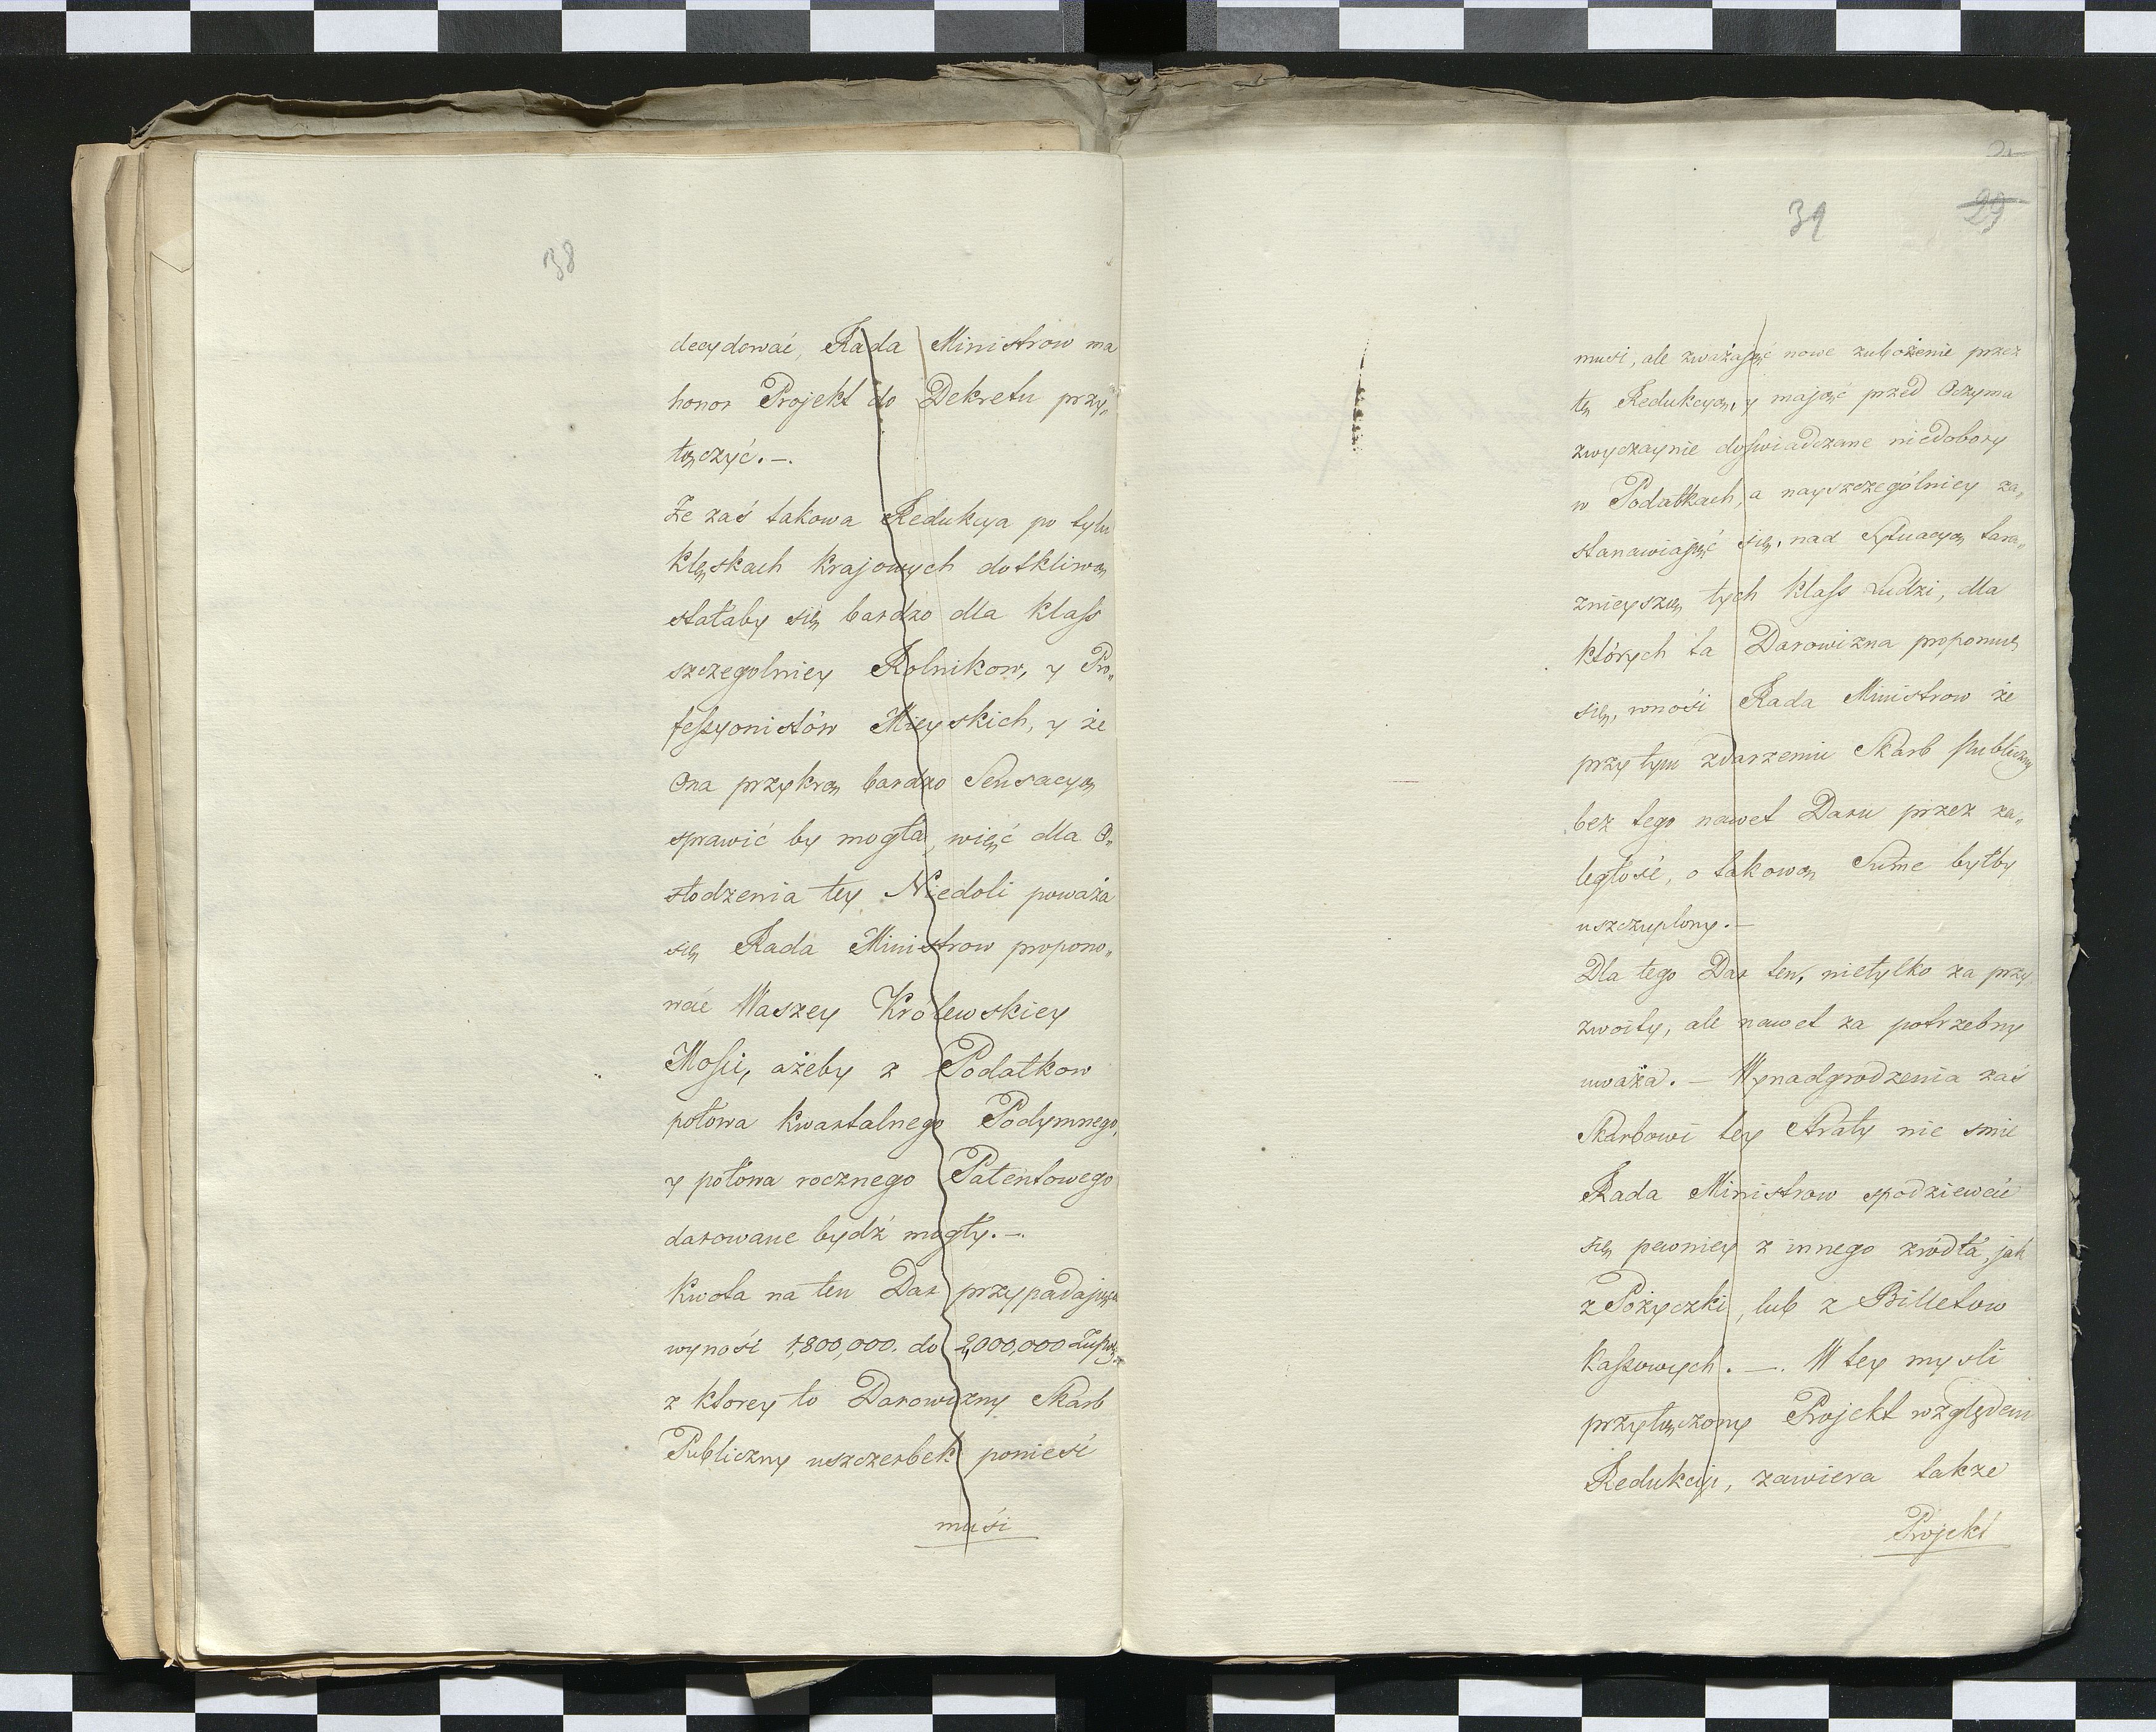 38
decydować, Rada Ministrow ma
honor Projekt do Dekretu przy„
łączyć.—.
Że zaś takowa Redukcya po tylu
klęskach krajowych dotkliwą
stałaby się bardzo dla klass
szczegolniey Rolnikow, y Pro„
fessyonistów Mieyskich, y że
Ona przykrą bardzo Sensacyą
sprawić by mogła, więć dla O„
słodzenia tey Niedoli poważa
się Rada Ministrow propono„
wać Waszey Królewskiey
Mości, ażeby z Podatkow
połowa kwartalnego Podymnego,
y połowa rocznego Patentowego
darowane bydź mogły.—.
Kwota na ten Dar przypadająca
wynosi 1,800,000. do 2,000,000
z ktorey to Darowizny Skarb
Publiczny uszczerbek ponieść
musi
39
29
musi, ale zważaiąć nowe zubożenie przez
tę Redukcyą, y mająć przed Oczyma
zwyczaynie doświadczane niedobory
w Podatkach, a nayszczególniey za„
stanawiająć się, nad Sytuacyą tera„
znieyszą tych klass Ludzi, dla
których ta Darowizna proponuie
się, wnosi Rada Ministrow że
przy tym zdarzeniu Skarb Publiczny
bez tego nawet Daru przez za„
ległość, o takową Sume byłby
uszczuplony.—
Dla tego Dar ten, nietylko za przy
zwoity, ale nawet za potrzebny
uważa.— Wynadgrodzenia zaś
Skarbowi tey Straty nie smie
Rada Ministrow spodziewać
się pewniey z innego zródła, jak
z Pożyczki, lub z Billetow
Kassowych.—. W tey mysli
przyłączony Projekt względem
Redukcyi, zawiera także
Projekt